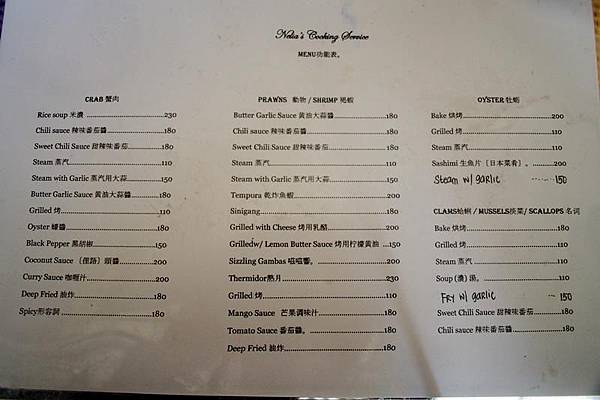 Nelia's Cooking Service
MENU功能表。
CRAB 蟹肉
Rice soup 米濃 ........230
Chili sauce 辣味番茄醬........180
Sweet Chili Sauce 甜辣味番茄........180
Steam 蒸汽........110
Steam with Garlic 蒸汽用大蒜........150
Butter Garlic Sauce 黃油大蒜醬........180
Grilled 烤........110
Oyster 蠔醬........180
Black Pepper 黑胡椒........150
Coconut Sauce （俚路）頭醬........200
Curry Sauce 咖喱汁........200
Deep Fried 油炸........180
Spicy形容詞........180
PRAWNS 動物 / SHRIMP 褐蝦
Butter Garlic Sauce 黃油大蒜醬........180
Chili sauce 辣味番茄醬........180
Sweet Chili Sauce 甜辣味番茄........180
Steam 蒸汽........110
Steam with Garlic 蒸汽用大蒜........150
Tempura 乾炸魚蝦........200
Sinigang........180
Grilled with Cheese 烤用乳酪........200
Grilledw/ Lemon Butter Sauce 烤用柠檬黄油 ....150
Sizzling Gambas 嘶嘶響。........200
Thermidor熱月........230
Grilled 烤........110
Mango Sauce 芒果调味汁........180
Tomato Sauce 番茄醬。........180
Deep Fried 油炸........180
OYSTER 牡蛎
Bake 烘烤........200
Grilled 烤........110
Steam 蒸汽........110
Sashimi 生魚片〔日本菜肴〕。........200
Steam w/ garlic ........ 150
CLAMS蛤蜊 / MUSSELS淡菜/ SCALLOPS 名词
Bake 烘烤........180
Grilled 烤........110
Steam 蒸汽 ........110
Soup (濃) 湯。........110
FRY w/ garlic ... 150
Sweet Chili Sauce 甜辣味番茄........180
Chili sauce 辣味番茄醬........180